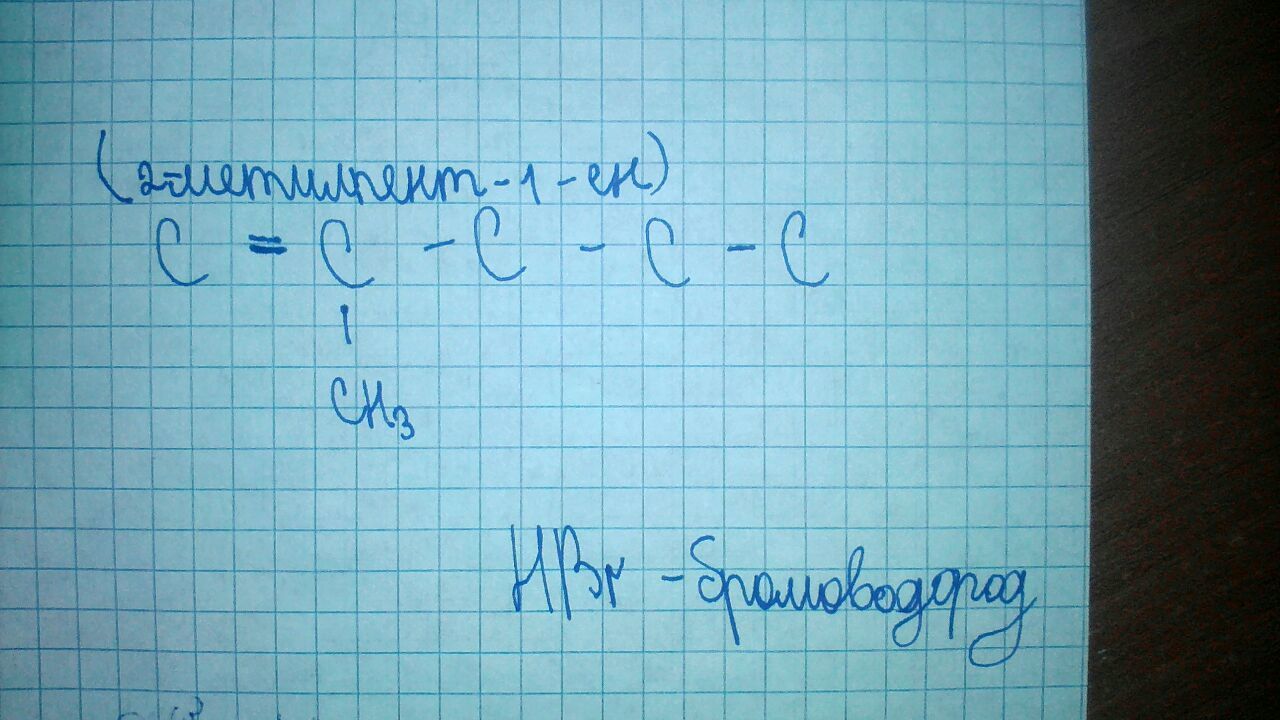 (2-метилпент-1-ен)
C = C - C - C - C
|
CH₃
HBr - бромоводород